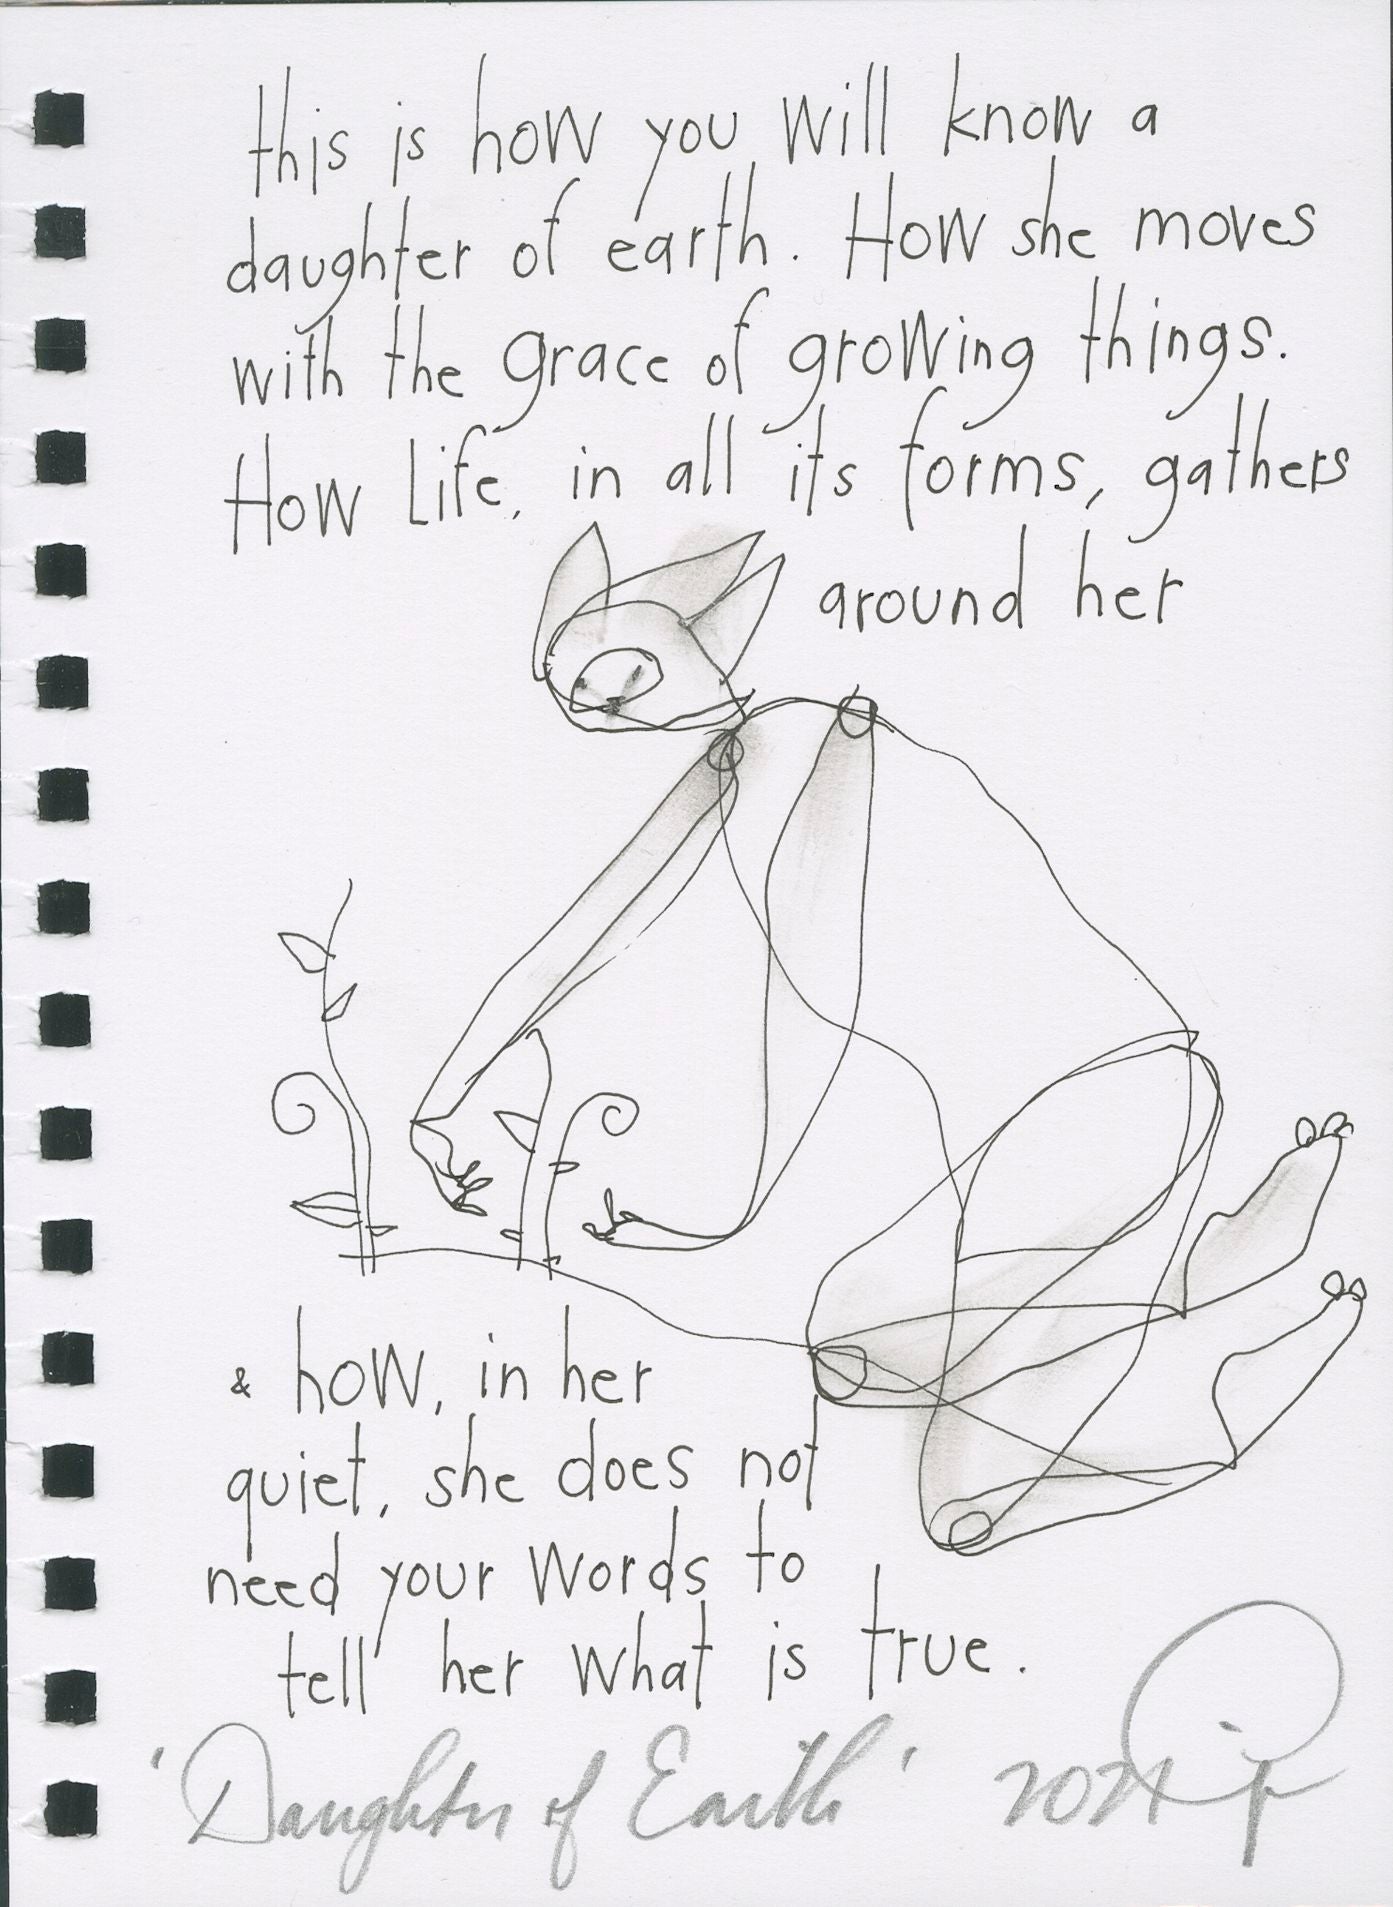 this is how you will know a
daughter of earth. How she moves
with the grace of growing things.
How Life, in all its forms, gathers
around her
& how, in her
quiet, she does not
need your words to
tell her what is true.
'Daughter of Earth' 2021